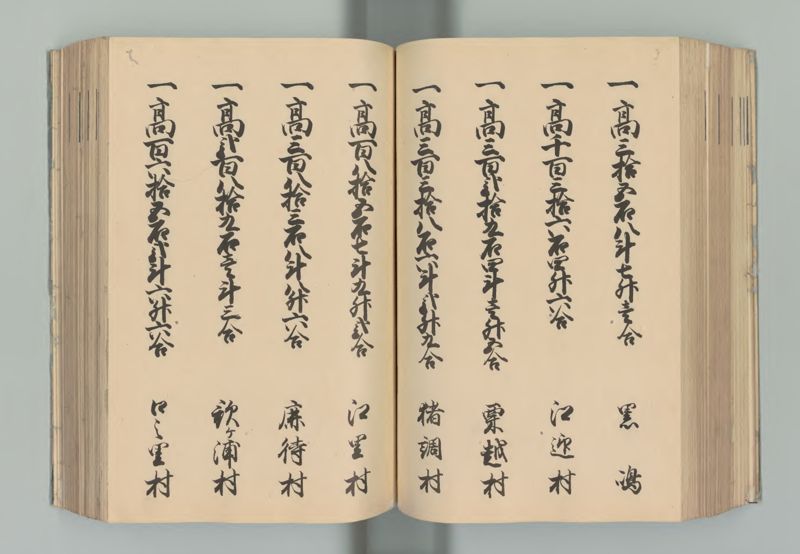 一高三拾五石八斗七升壱合 黒嶋
一高千百三拾六石四升六合 江迎村
一高三百弐拾九石四斗壱升五合 粟越村
一高三百三拾八石六斗弐升九合 猪調村
一高百八拾五石七斗九升弐合 江里村
一高三百八拾三石八斗八升六合 鹿待村
一高弐百八拾九石壱斗三合 歌ケ浦村
一高百六拾五石弐斗六升六合 口之里村